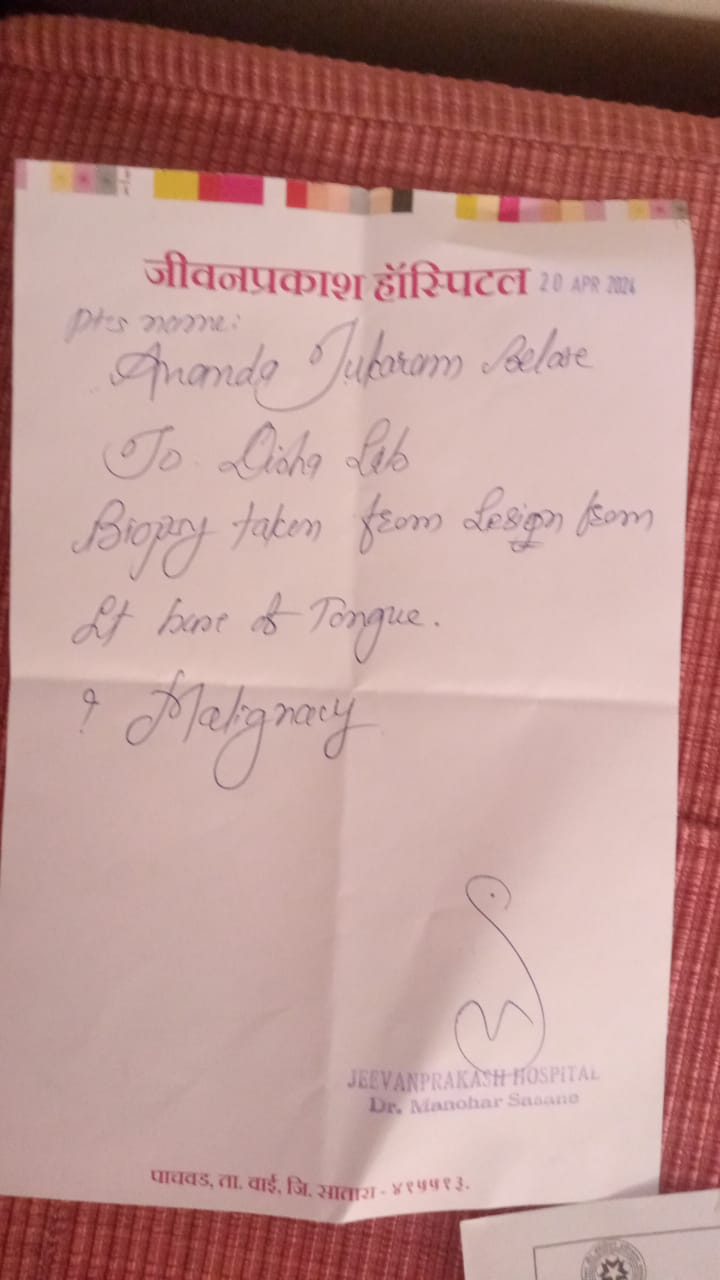 जीवनप्रकाश हॉस्पिटल 20 APR 2024
Pts name:
Ananda Tukaram Belare
To Disha Lab
Biopsy taken from Lesion from
Lt base of Tongue.
? Malignacy
JEEVANPRAKASH HOSPITAL
Dr. Manohar Sasane
पाचवड, ता. वाई, जि. सातारा - ४१५५१३.